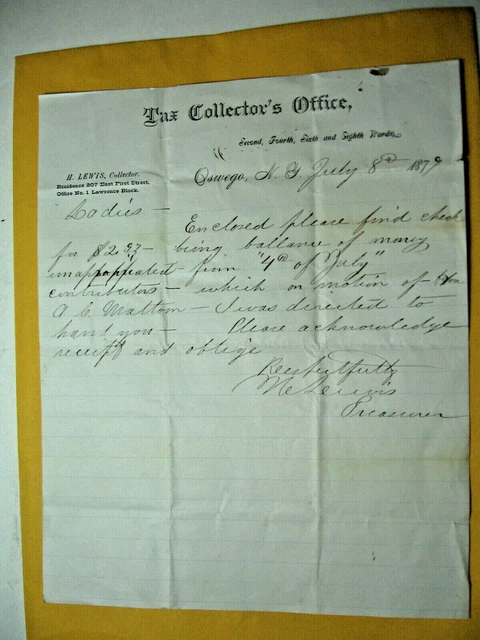 Tax Collector's Office,
Second, Fourth, Sixth and Eighth Wards,
H. LEWIS, Collector.
Residence 207 East First Street,
Office No. 1 Lawrence Block.
Oswego, N. Y. July 8th 1879
Ladies —
Enclosed please find check
for $2.37 — being ballance of money
unappropiated from "4th of July"
contributors — which on motion of Hon
A. C. Mattoon — I was directed to
hand you — Please acknowledge
receipt and oblige
Respectfully
H Lewis
Treasurer